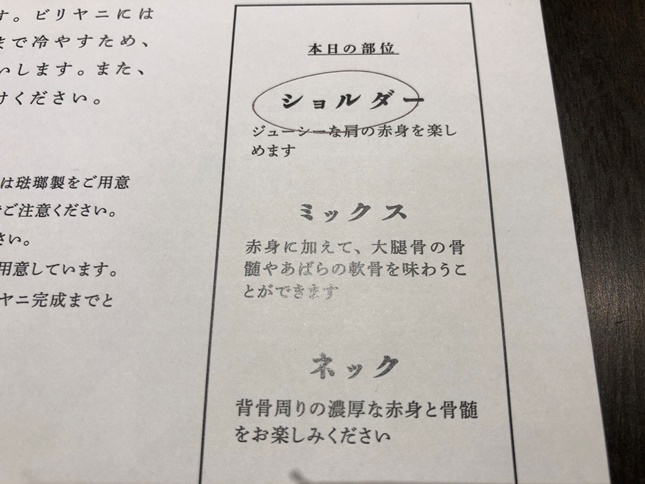 す。ビリヤニには
まで冷やすため、
いします。また、
けください。
は琺瑯製をご用意
ご注意ください。
さい。
用意しています。
ヤニ完成までと
本日の部位
ショルダー
ジューシーな肩の赤身を楽し
めます
ミックス
赤身に加えて、大腿骨の骨
髄やあばらの軟骨を味わうこ
とができます
ネック
背骨周りの濃厚な赤身と骨髄
をお楽しみください